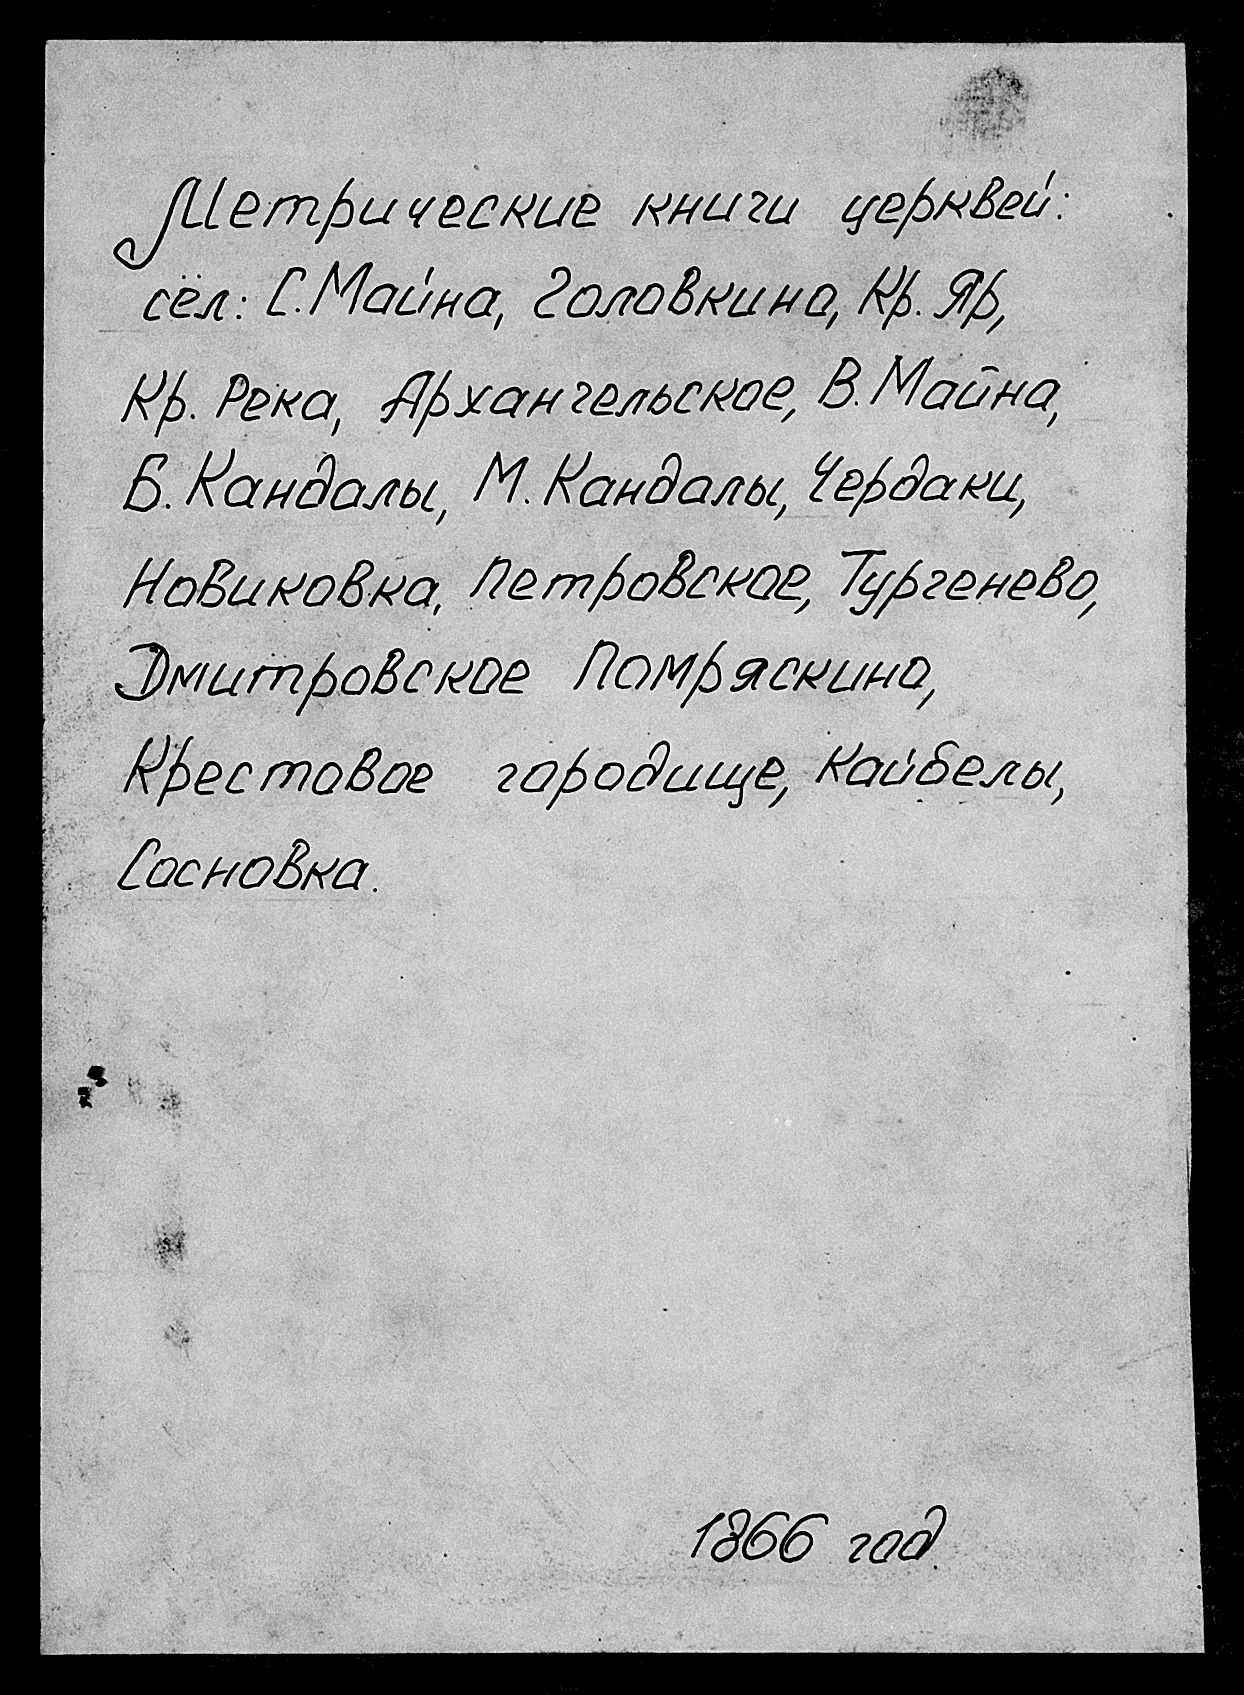 Метрические книги церквей:
сёл: С. Майна, Головкино, Кр. Яр,
Кр. Река, Архангельское, В. Майна,
Б. Кандалы, М. Кандалы, Чердаки,
Новиковка, Петровское, Тургенево,
Дмитровское Помряскино,
Крестовое городище, Кайбелы,
Сосновка.
1866 год.